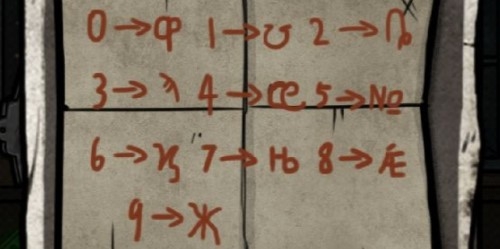 0→ф 1→ʊ 2→Ҧ
3→λ 4→ҨЄ 5→№
6→ҋ 7→Њ 8→Æ
9→Ж